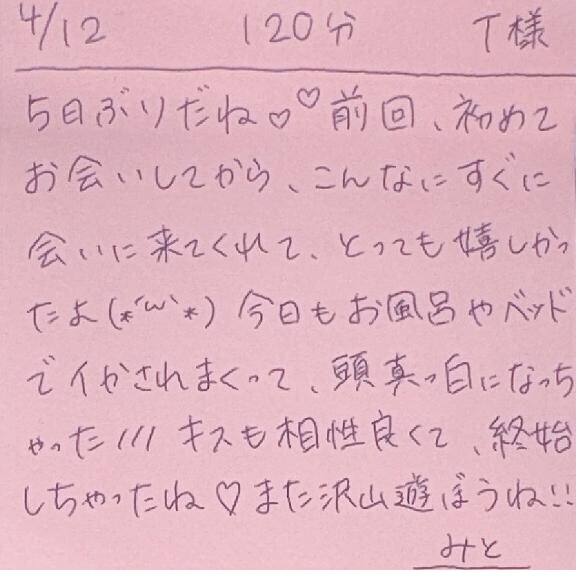 4/12 120分 T様
5日ぶりだね♡♡前回、初めて
お会いしてから、こんなにすぐに
会いに来てくれて、とっても嬉しかっ
たよ(*´ω`*) 今日もお風呂やベッド
でイかされまくって、頭真っ白になっち
ゃった/// キスも相性良くて、終始
しちゃったね♡また沢山遊ぼうね!!
みと